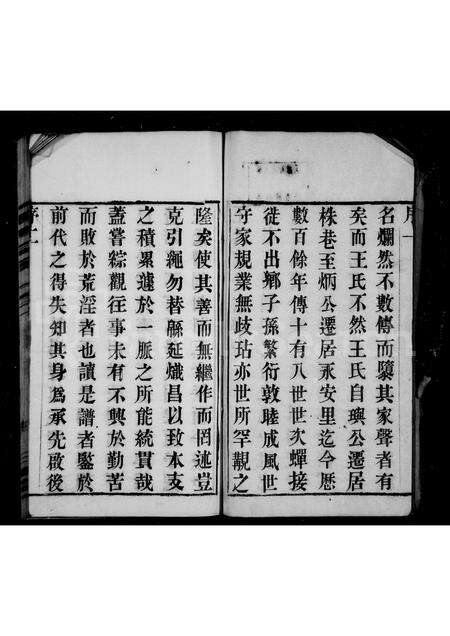 名爛然不數傳而隳其家聲者有
矣而王氏不然王氏自璵公遷居
株巷至炳公遷居永安里迄今歷
數百餘年傳十有八世世次蟬接
徙不出鄉子孫繁衍敦睦成風世
守家規業無歧玷亦世所罕觀之
隆矣使其善而無繼作而罔述豈
克引繩勿替緜延熾昌以致本支
之積累遽於一脈之所能統貫哉
蓋嘗綜觀往事未有不興於勤苦
而敗於荒淫者也讀是譜者鑒於
前代之得失知其身為承先啟後
序二